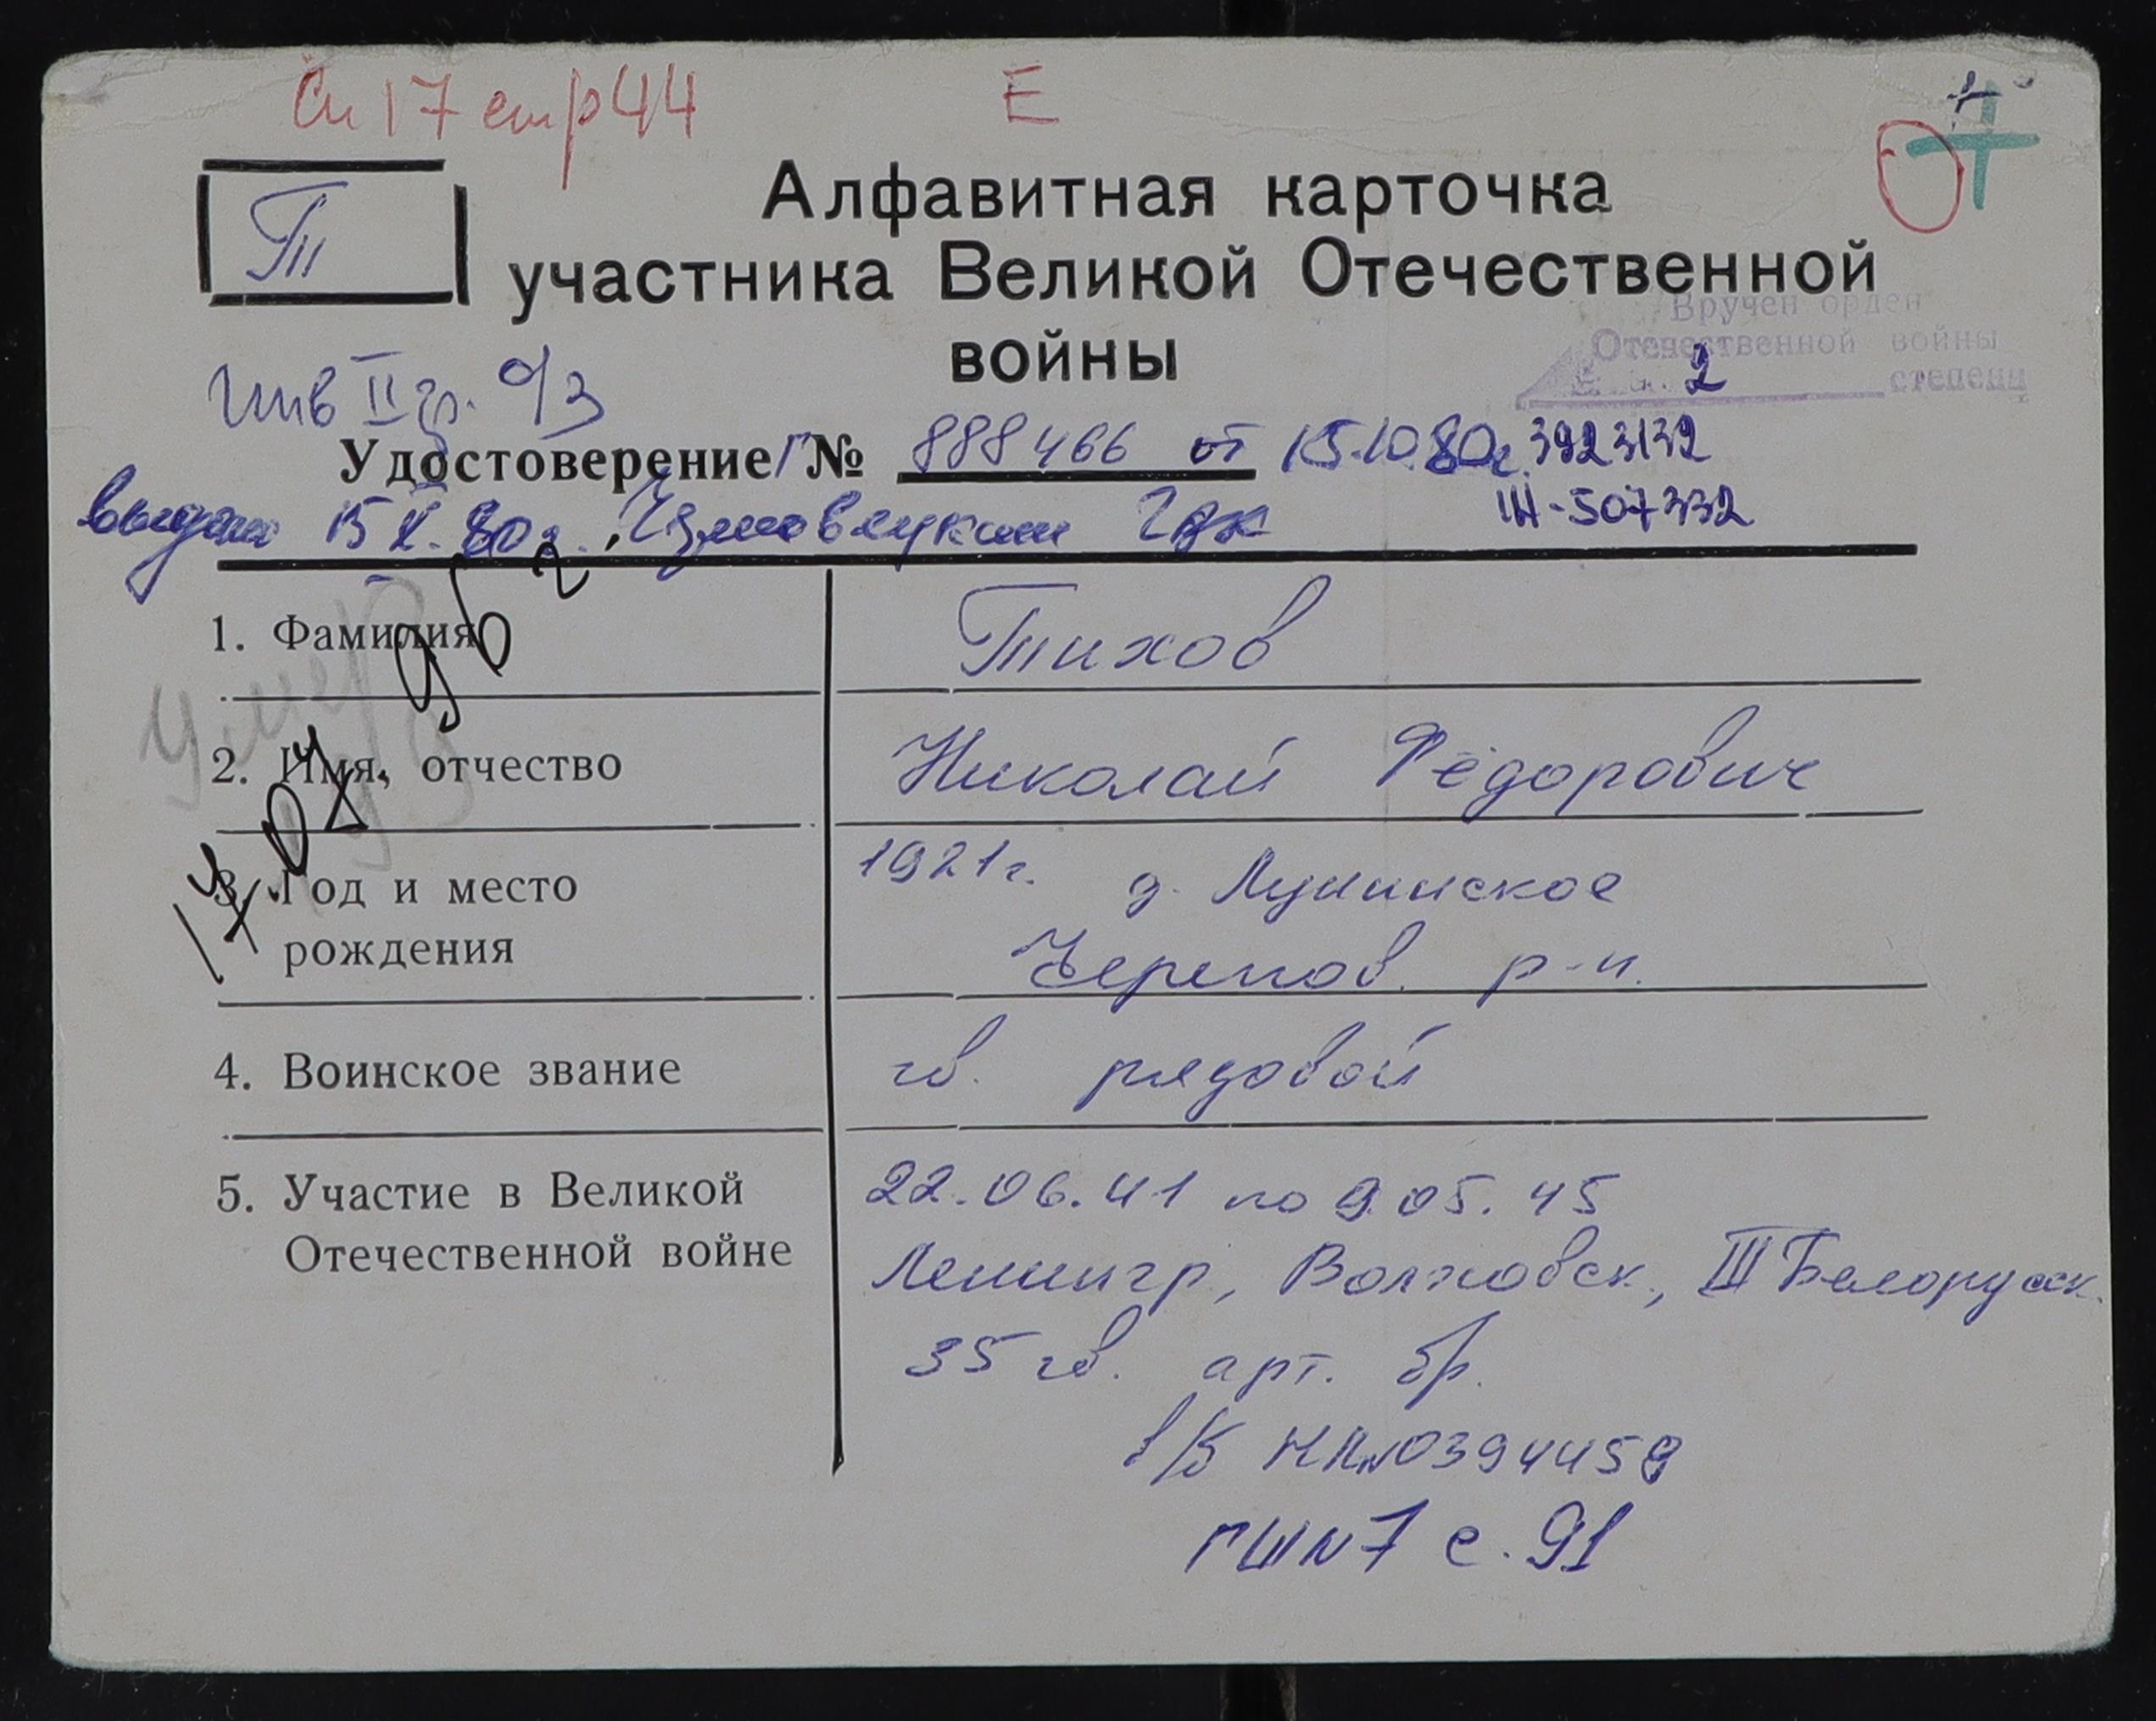 Сп 17 стр 44
Е
Т
Алфавитная карточка
участника Великой Отечественной
войны
Вручен орден
Отечественной войны
2 степени
инв II гр. о/з
Удостоверение Г № 888466 от 15.10.80г. 3923132
выдан 15.X.80г.
507332
1. Фамилия
Тихов
умер
2. Имя, отчество
Николай Фёдорович
3. Год и место
рождения
1921г. д.
Черепов. р-н.
4. Воинское звание
гв. рядовой
5. Участие в Великой
Отечественной войне
22.06.41 по 9.05.45
Ленингр, Волховск, III Белорусск.
35 гв. арт. бр.
в/б НЛ№0394459
ГШ№7 с. 91